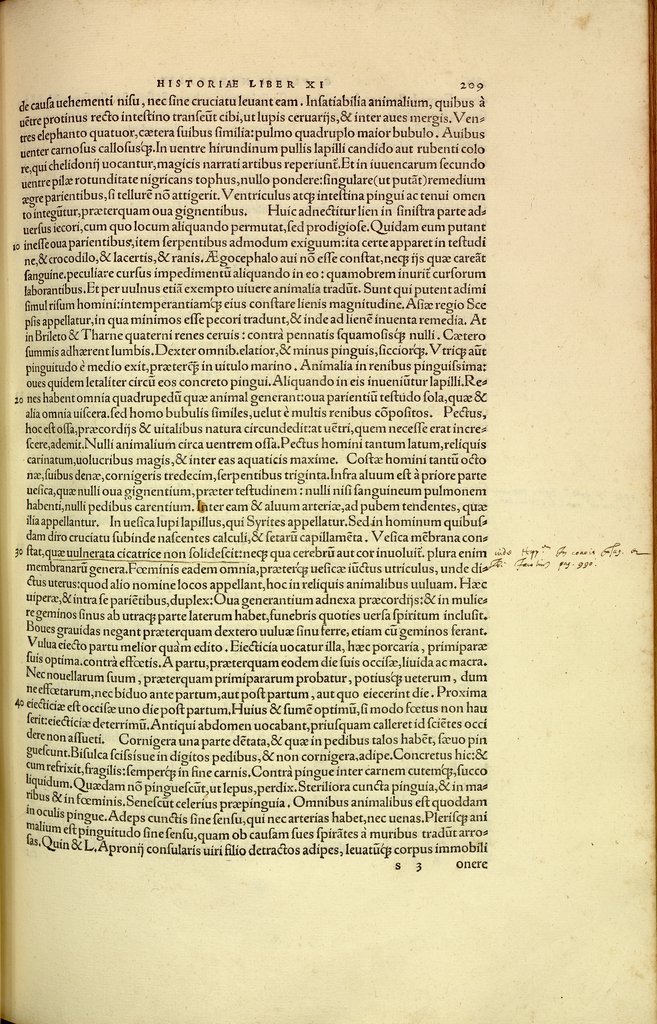 HISTORIAE LIBER XI 209
de causa uehementi nisu, nec sine cruciatu leuant eam. Insatiabilia animalium, quibus à
uẽtre protinus recto intestino transeũt cibi, ut lupis ceruarijs, & inter aues mergis. Ven-
tres elephanto quatuor, cætera suibus similia: pulmo quadruplo maior bubulo. Auibus
uenter carnosus callosusq;. In uentre hirundinum pullis lapilli candido aut rubenti colo
re, qui chelidonij uocantur, magicis narrati artibus reperiunt. Et in iuuencarum secundo
uentre pilæ rotunditate nigricans tophus, nullo pondere: singulare (ut putãt) remedium
ægre parientibus, si tellurẽ nõ attigerit. Ventriculus atq; intestina pingui ac tenui omen
to integũtur, præterquam oua gignentibus. Huic adnectitur lien in sinistra parte ad-
uersus iecori, cum quo locum aliquando permutat, sed prodigiose. Quidam eum putant
10 inesse oua parientibus, item serpentibus admodum exiguum: ita certe apparet in testudi
ne, & crocodilo, & lacertis, & ranis. Ægocephalo aui nõ esse constat, necq; ijs quæ careãt
sanguine. peculiare cursus impedimentũ aliquando in eo: quamobrem inurit cursorum
laborantibus. Et per uulnus etiã exempto uiuere animalia tradũt. Sunt qui putent adimi
simul risum homini: intemperantiamq; eius constare lienis magnitudine. Asiæ regio Sce
psis appellatur, in qua minimos esse pecori tradunt, & inde ad lienẽ inuenta remedia. At
in Brileto & Tharne quaterni renes ceruis: contrà pennatis squamosisq; nulli. Cætero
summis adhærent lumbis. Dexter omnib. elatior, & minus pinguis, sicciorq;. Vtriq; aũt
pinguitudo è medio exit, præterq; in uitulo marino. Animalia in renibus pinguissima:
oues quidem letaliter circũ eos concreto pingui. Aliquando in eis inueniũtur lapilli. Re-
20 nes habent omnia quadrupedũ quæ animal generant: oua parientiũ testudo sola, quæ &
alia omnia uiscera. sed homo bubulis similes, uelut è multis renibus cõpositos. Pectus,
hoc est ossa, præcordijs & uitalibus natura circundedit: at uẽtri, quem necesse erat incre-
scere, ademit. Nulli animalium circa uentrem ossa. Pectus homini tantum latum, reliquis
carinatum, uolucribus magis, & inter eas aquaticis maxime. Costæ homini tantũ octo
næ, suibus denæ, cornigeris tredecim, serpentibus triginta. Infra aluum est à priore parte
uesica, quæ nulli oua gignentium, præter testudinem: nulli nisi sanguineum pulmonem
habenti, nulli pedibus carentium. Inter eam & aluum arteriæ, ad pubem tendentes, quæ
ilia appellantur. In uesica lupi lapillus, qui Syrites appellatur. Sed in hominum quibus-
dam diro cruciatu subinde nascentes calculi, & setarũ capillamẽta. Vesica mẽbrana con-
30 stat, quæ uulnerata cicatrice non solidescit: necq; qua cerebrũ aut cor inuoluit. plura enim
membranarũ genera. Fœminis eadem omnia, præterq; uesicæ iũctus utriculus, unde di-
ctus uterus: quod alio nomine locos appellant, hoc in reliquis animalibus uuluam. Hæc
uiperæ, & intra se pariẽtibus, duplex: Oua generantium adnexa præcordijs: & in mulie-
re geminos sinus ab utraq; parte laterum habet, funebris quoties uersa spiritum inclusit.
Boues grauidas negant præterquam dextero uuluæ sinu ferre, etiam cũ geminos ferant.
Vulua eiecto partu melior quàm edito. Eiecticia uocatur illa, hæc porcaria, primiparæ
suis optima. contrà effœtis. A partu, præterquam eodem die suis occisæ, liuida ac macra.
Nec nouellarum suum, præterquam primipararum probatur, potiusq; ueterum, dum
ne effœtarum, nec biduo ante partum, aut post partum, aut quo eiecerint die. Proxima
40 eiecticiæ est occisæ uno die post partum. Huius & sumẽ optimũ, si modo fœtus non hau
serit: eiecticiæ deterrimũ. Antiqui abdomen uocabant, priusquam calleret id sciẽtes occi
dere non assueti. Cornigera una parte dẽtata, & quæ in pedibus talos habẽt, sæuo pin
guescunt. Bisulca scissisue in digitos pedibus, & non cornigera, adipe. Concretus hic: &
cum refrixit, fragilis: semperq; in fine carnis. Contrà pingue inter carnem cutemq;, succo
liquidum. Quædam nõ pinguescũt, ut lepus, perdix. Steriliora cuncta pinguia, & in ma-
ribus & in fœminis. Senescũt celerius præpinguia. Omnibus animalibus est quoddam
in oculis pingue. Adeps cunctis sine sensu, qui nec arterias habet, nec uenas. Plerisq; ani
malium est pinguitudo sine sensu, quam ob causam sues spirãtes à muribus tradũt arro-
sas. Quin & L. Apronij consularis uiri filio detractos adipes, leuatũq; corpus immobili
s 3 onere
pag. 990.